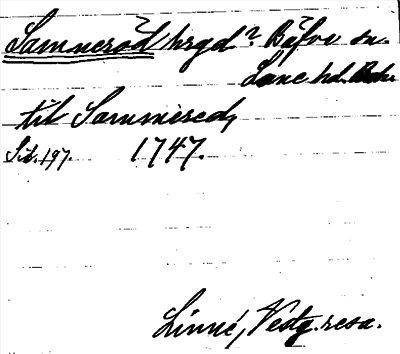 Samneröd hrgd? Bäfve sn.
Lane hd. Boh.
till Sammered,
Sid. 197. 1747.
Linné, Västg. resa.